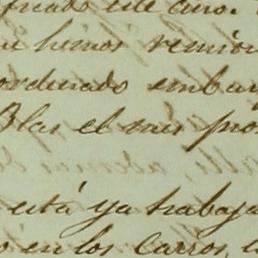 este año.
hemos
ordenado embar
Blas el mes pro
está ya trabaja
en los Carros,